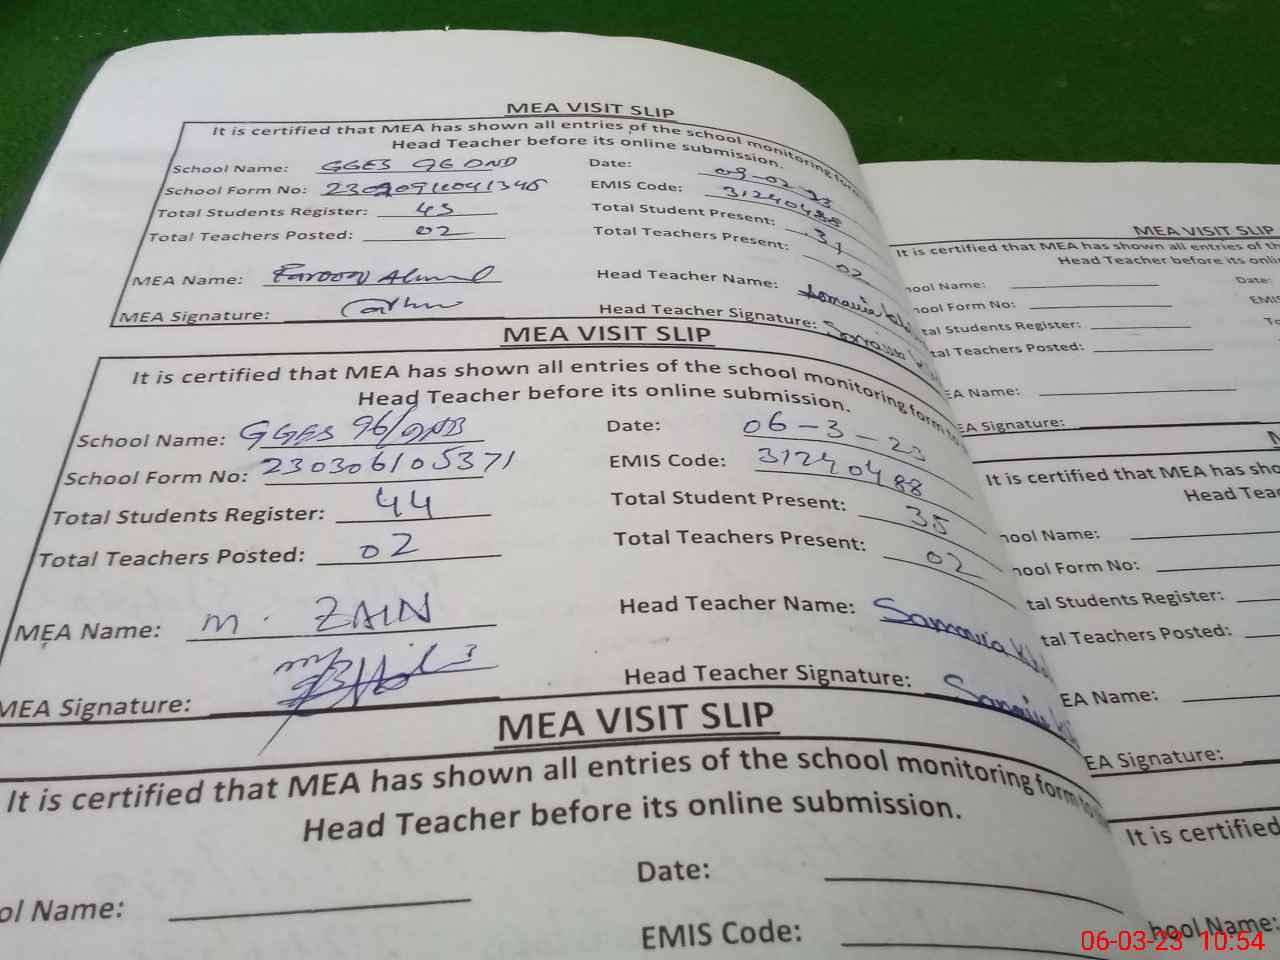 MEA VISIT SLIP
It is certified that MEA has shown all entries of the school monitoring form
Head Teacher before its online submission.
School Name: GGES 96 DNB Date: 09-02-23
School Form No: EMIS Code: 31240488
Total Students Register: 45 Total Student Present: 31
Total Teachers Posted: 02 Total Teachers Present: 02
MEA Name: Farooq Ahmad Head Teacher Name:
MEA Signature: Head Teacher Signature:
MEA VISIT SLIP
It is certified that MEA has shown all entries of the school monitoring form to
Head Teacher before its online submission.
School Name: GGES 96/DNB Date: 06-3-23
School Form No: 230306105371 EMIS Code: 31240488
Total Students Register: 44 Total Student Present: 35
Total Teachers Posted: 02 Total Teachers Present: 02
MEA Name: M. ZAIN Head Teacher Name:
MEA Signature: Head Teacher Signature:
MEA VISIT SLIP
It is certified that MEA has shown all entries of the school monitoring form to
Head Teacher before its online submission.
ol Name: Date:
EMIS Code:
MEA VISIT SLIP
It is certified that MEA has shown all entries of th
Head Teacher before its onlin
ool Name: Date:
ool Form No: EMIS
tal Students Register:
tal Teachers Posted:
EA Name:
EA Signature:
It is certified that MEA has sho
Head Teac
ool Name:
ool Form No:
tal Students Register:
tal Teachers Posted:
EA Name:
EA Signature:
It is certified
hool Name:
06-03-23 10:54